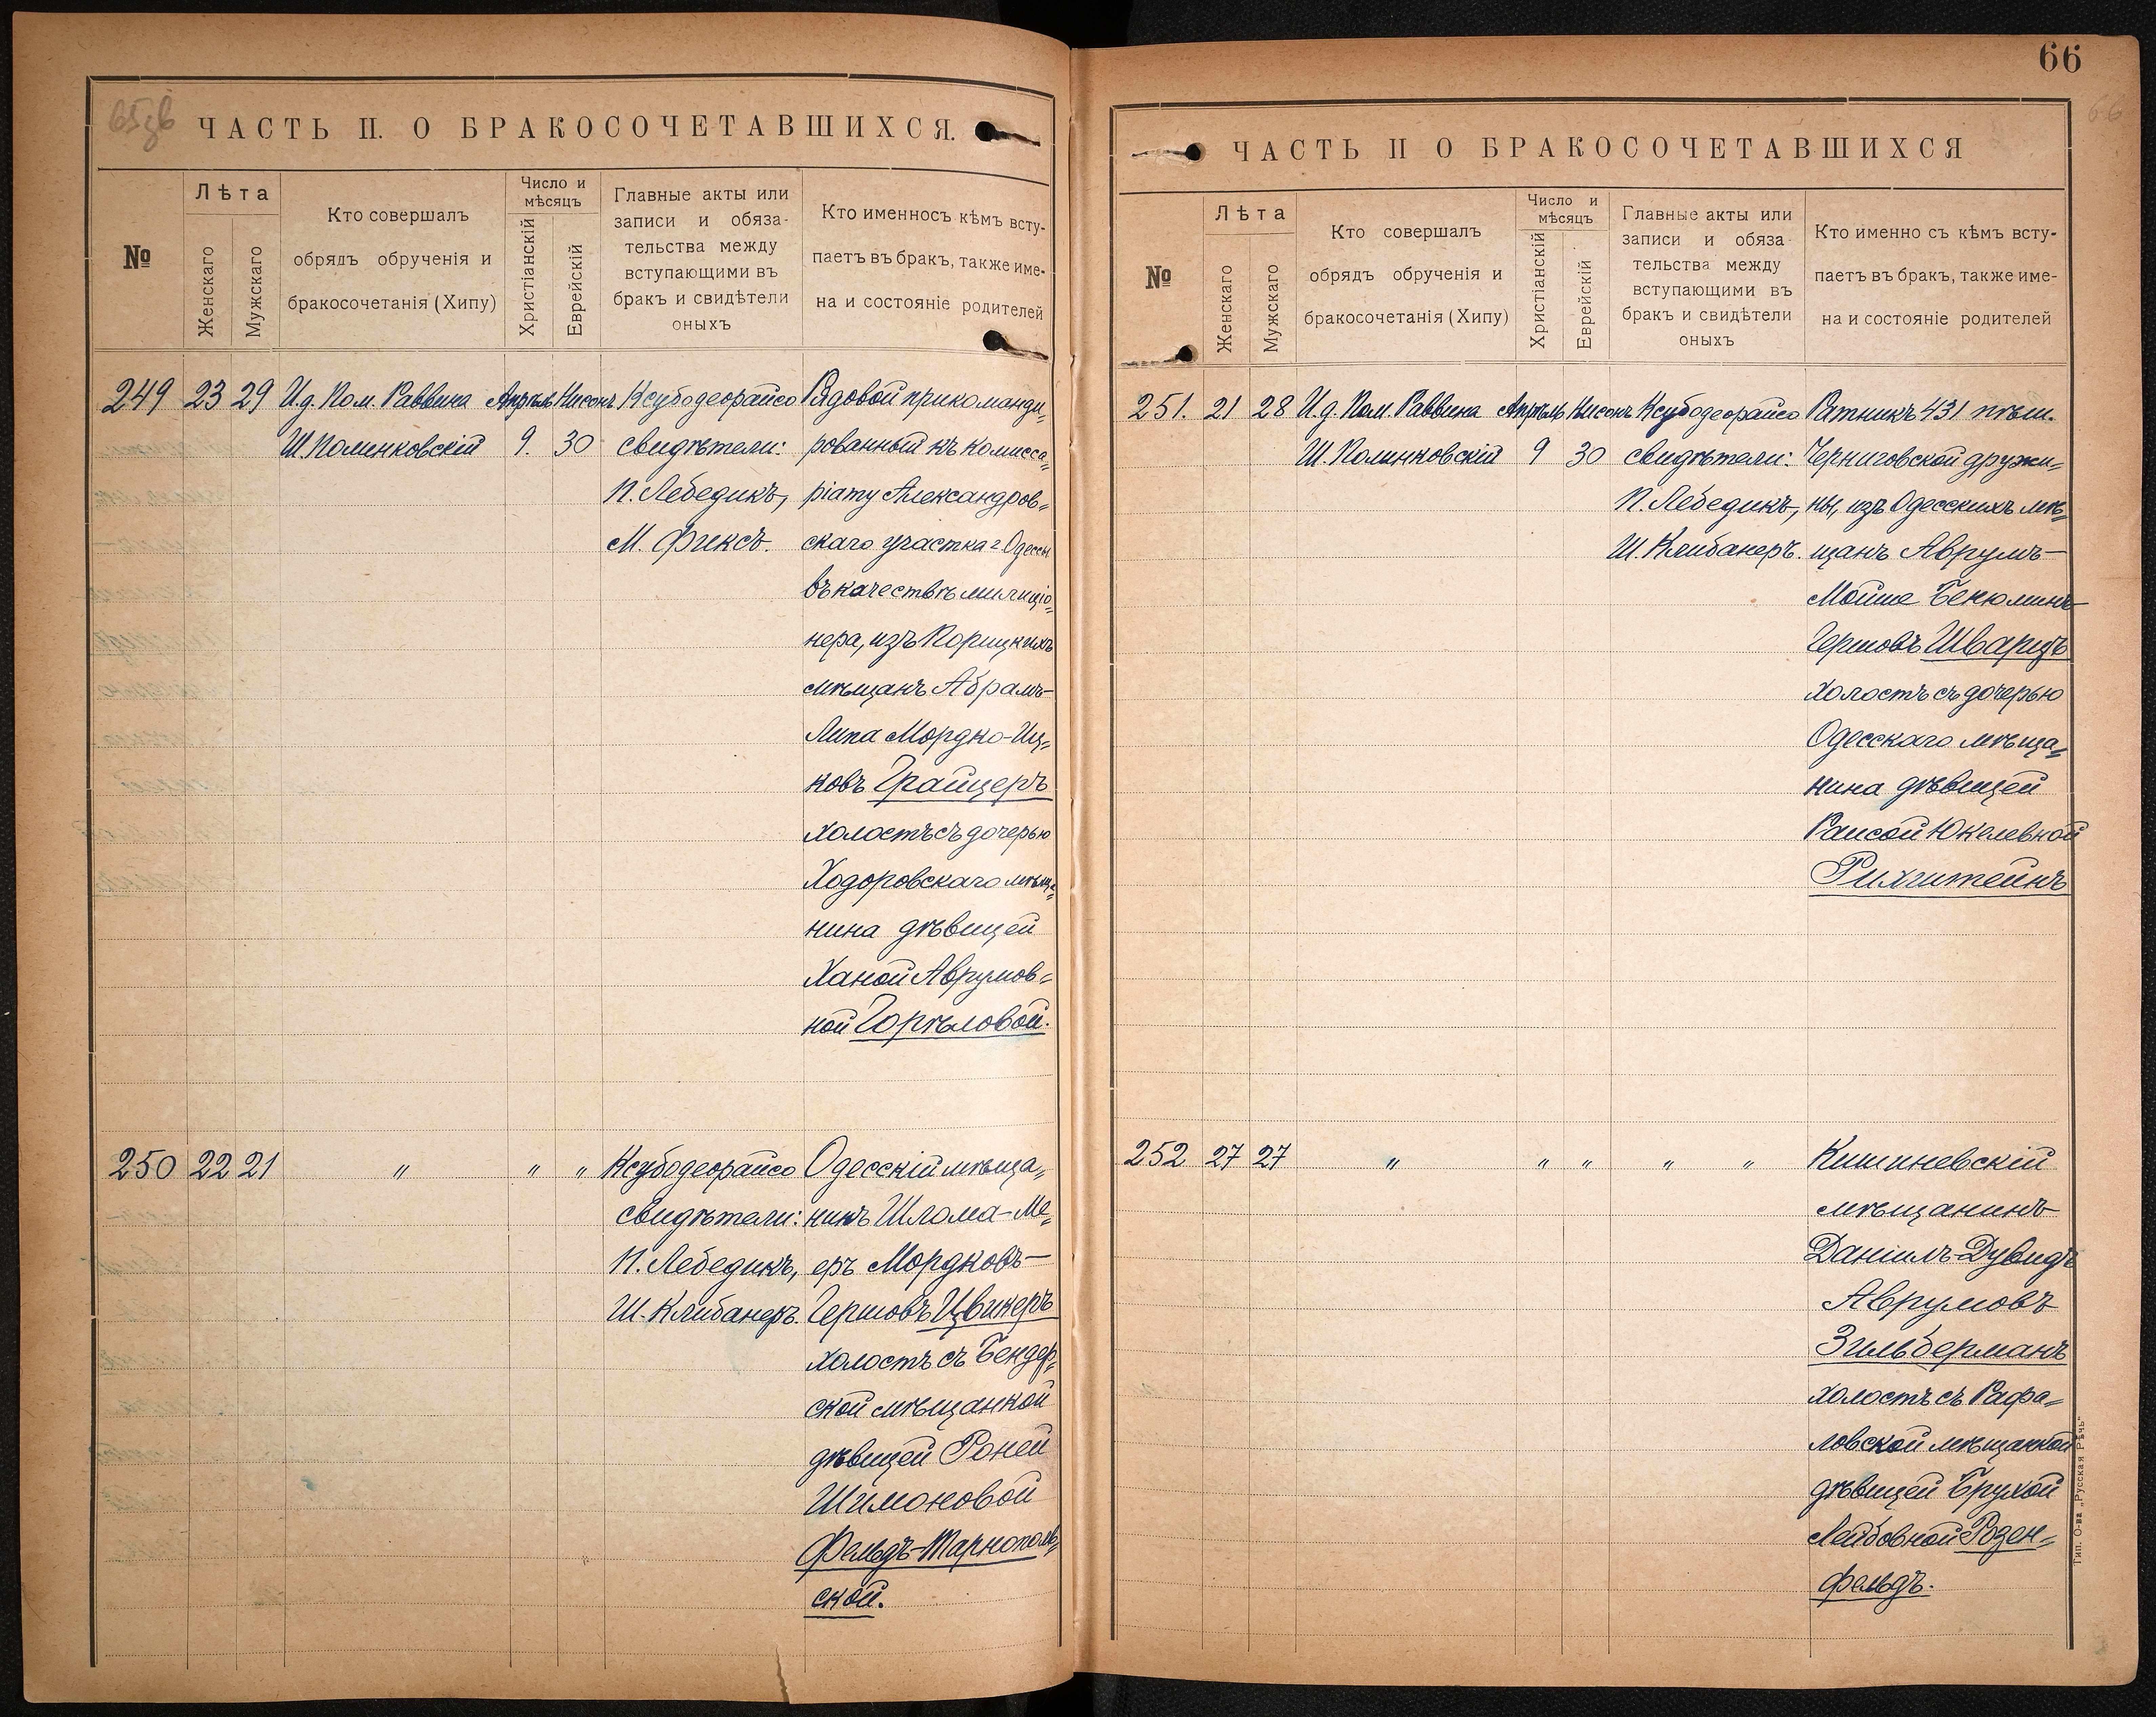 65об
ЧАСТЬ II. О БРАКОСОЧЕТАВШИХСЯ.
№
Лѣта
Женскаго
Мужскаго
Кто совершалъ
обрядъ обрученія и
бракосочетанія (Хипу)
Число и
мѣсяцъ
Христіанскій
Еврейскій
Главные акты или
записи и обяза-
тельства между
вступающими въ
бракъ и свидѣтели
оныхъ
Кто именносъ кѣмъ всту-
паетъ въ бракъ, также име-
на и состояніе родителей
249 23 29 И.д. Пом. Раввина Апрѣль Нисонъ Ксубодеорайсо Рядовой прикоманди=
Ш. Полинковскій 9. 30 свидѣтели: рованный къ комисса=
П. Лебедикъ, ріату Александров=
М. Фиксъ. скаго участка г. Одессы
въ качествѣ милиціо=
нера, изъ Порицкихъ
мѣщанъ Абрамъ-
Липа Мордко-Иц=
ковъ Грайцеръ
холостъ съ дочерью
Ходоровскаго мѣща=
нина дѣвицей
Ханой Аврумов=
ной Горѣловой.
250 22 21 " " " Ксубодеорайсо Одесскій мѣща=
свидѣтели: нинъ Шлома-Ме=
П. Лебедикъ, еръ Мордковъ-
Ш. Клибанеръ. Гершовъ Цвикеръ
холостъ съ Бендер=
ской мѣщанкой
дѣвицей Роней
Шимоновой
Фельдъ-Тарнополь=
ской.
66
66
ЧАСТЬ II О БРАКОСОЧЕТАВШИХСЯ
№
Лѣта
Женскаго
Мужскаго
Кто совершалъ
обрядъ обрученія и
бракосочетанія (Хипу)
Число и
мѣсяцъ
Христіанскій
Еврейскій
Главные акты или
записи и обяза-
тельства между
вступающими въ
бракъ и свидѣтели
оныхъ
Кто именно съ кѣмъ всту-
паетъ въ бракъ, также име-
на и состояніе родителей
251. 21 28 И.д. Пом. Раввина Апрѣль Нисонъ Ксубодеорайсо Ратникъ 431 пѣш.
Ш. Полинковскій 9 30 свидѣтели: Черниговской дружи=
П. Лебедикъ, ны, изъ Одесскихъ мѣ=
Ш. Клибанеръ. щанъ Аврумъ-
Мойше Бенюминъ-
Гершовъ Шварцъ
холостъ съ дочерью
Одесскаго мѣща=
нина дѣвицей
Раисой Юкелевной
Рихштейнъ
252 27 27 " " " " " Кишиневскій
мѣщанинъ
Даніилъ-Дувидъ
Аврумовъ
Зильберманъ
холостъ съ Рафа=
ловской мѣщанкой
дѣвицей Брухой
Лейбовной Розен=
фельдъ.
Тип. О-ва „Русская Рѣчь“